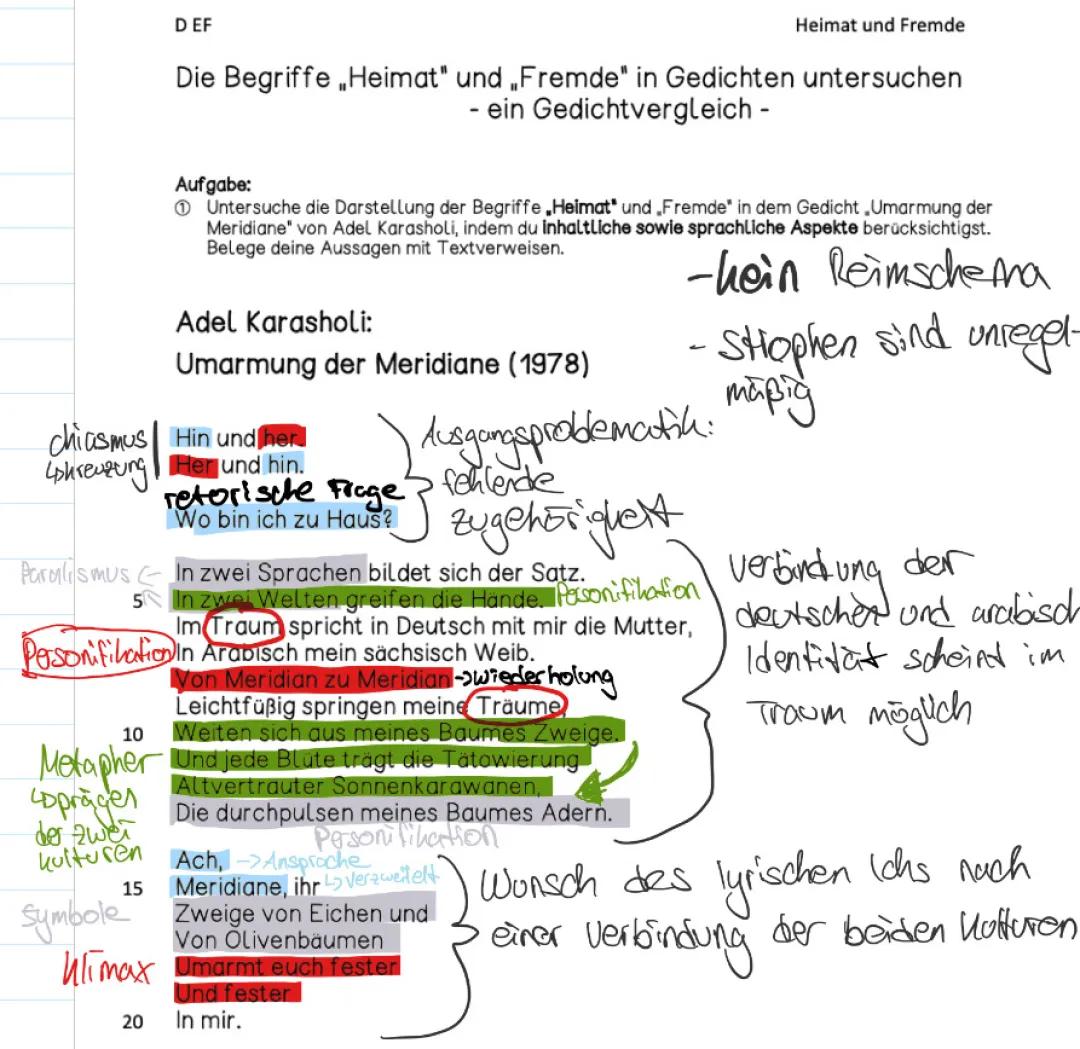 D EF Heimat und Fremde
Die Begriffe „Heimat" und „Fremde" in Gedichten untersuchen
- ein Gedichtvergleich -
Aufgabe:
① Untersuche die Darstellung der Begriffe „Heimat" und „Fremde" in dem Gedicht „Umarmung der
Meridiane" von Adel Karasholi, indem du inhaltliche sowie sprachliche Aspekte berücksichtigst.
Belege deine Aussagen mit Textverweisen.
-kein Reimschema
- Strophen sind unregel-
mäßig
Adel Karasholi:
Umarmung der Meridiane (1978)
chiasmus
↳kreuzung
Hin und her.
Her und hin.
retorische Frage
Wo bin ich zu Haus?
Ausgangsproblematik:
fehlende
zugehörigkeit
Paralismus ←
In zwei Sprachen bildet sich der Satz.
5 In zwei Welten greifen die Hände. Personifikation
Im Traum spricht in Deutsch mit mir die Mutter,
Personifikation In Arabisch mein sächsisch Weib.
Von Meridian zu Meridian →wiederholung
Leichtfüßig springen meine Träume,
10 Weiten sich aus meines Baumes Zweige.
Und jede Blüte trägt die Tätowierung
Altvertrauter Sonnenkarawanen,
Die durchpulsen meines Baumes Adern.
Personifikation
Metapher
↳prägen
der zwei
kulturen
Verbindung der
deutschen und arabisch
Identität scheint im
Traum möglich
Ach, →Ansprache
15 Meridiane, ihr ↳verzweifelt
Symbole
Zweige von Eichen und
Von Olivenbäumen
Klimax Umarmt euch fester
Und fester
20 In mir.
Wunsch des lyrischen Ichs nach
einer Verbindung der beiden Kulturen